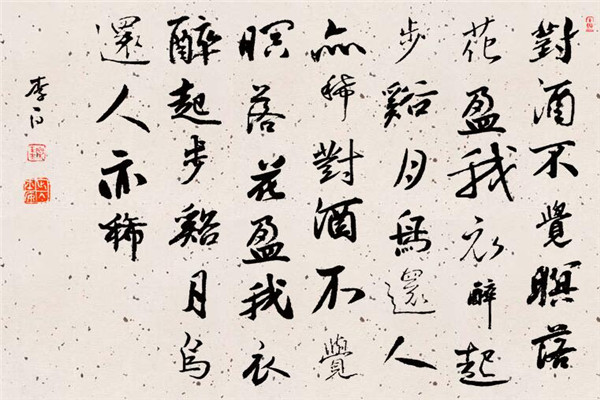 對酒不覺暝落
花盈我衣醉起
步谿月鳥還人
亦稀對酒不覺
暝落花盈我衣
醉起步谿月鳥
還人亦稀
李白